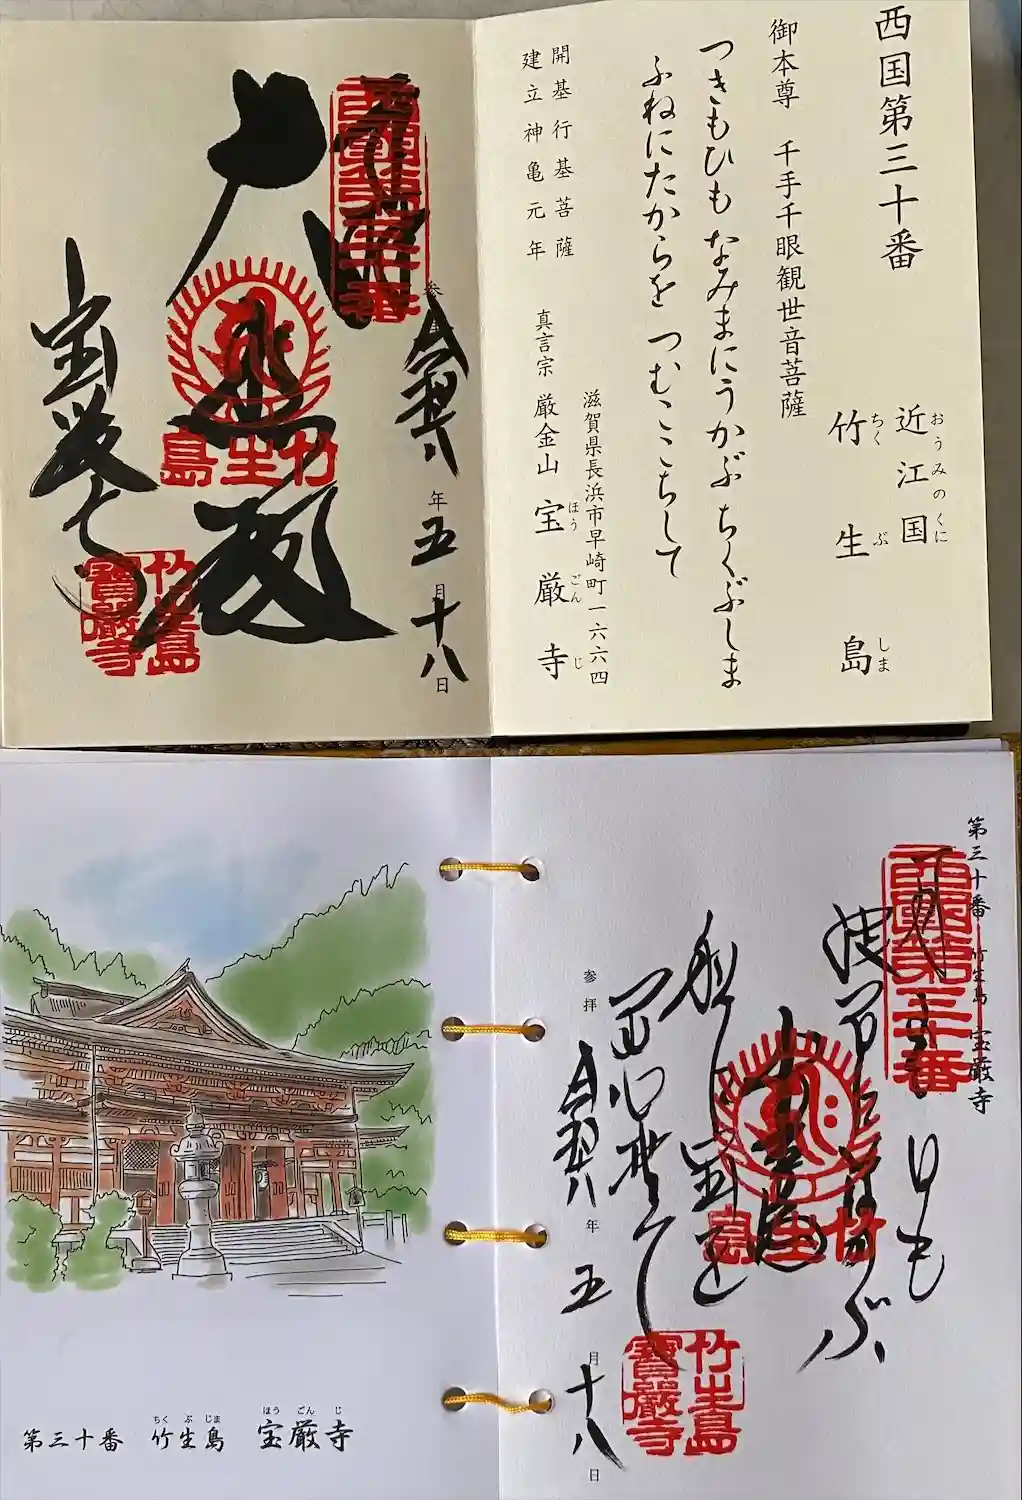 西国第三十番
近江国
おうみのくに
竹生島
ちくぶしま
御本尊 千手千眼観世音菩薩
つきもひも なみまにうかぶ ちくぶしま
ふねにたからを つむここちして
開基行基菩薩
建立神亀元年
滋賀県長浜市早崎町一六六四
真言宗 厳金山 宝厳寺
ほうごんじ
西國第三十番
令和八年五月十八日
大悲殿
竹生島
宝厳寺
竹生島
寶厳寺
第三十番 竹生島 宝厳寺
西國第三十番
竹生島
参拝 令和八年五月十八日
竹生島
寶厳寺
第三十番 竹生島 宝厳寺
ちくぶじま ほうごんじ